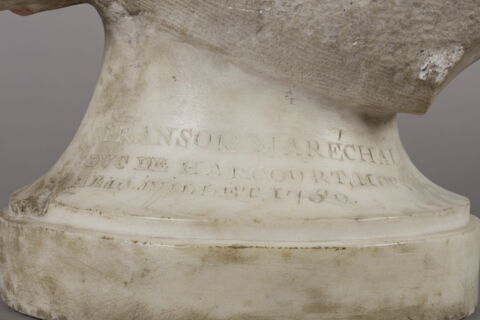 FRANSOIS MARÉCHAL
DUC DE HARCOURT, MORT
LE 10 JUILLET 1750.